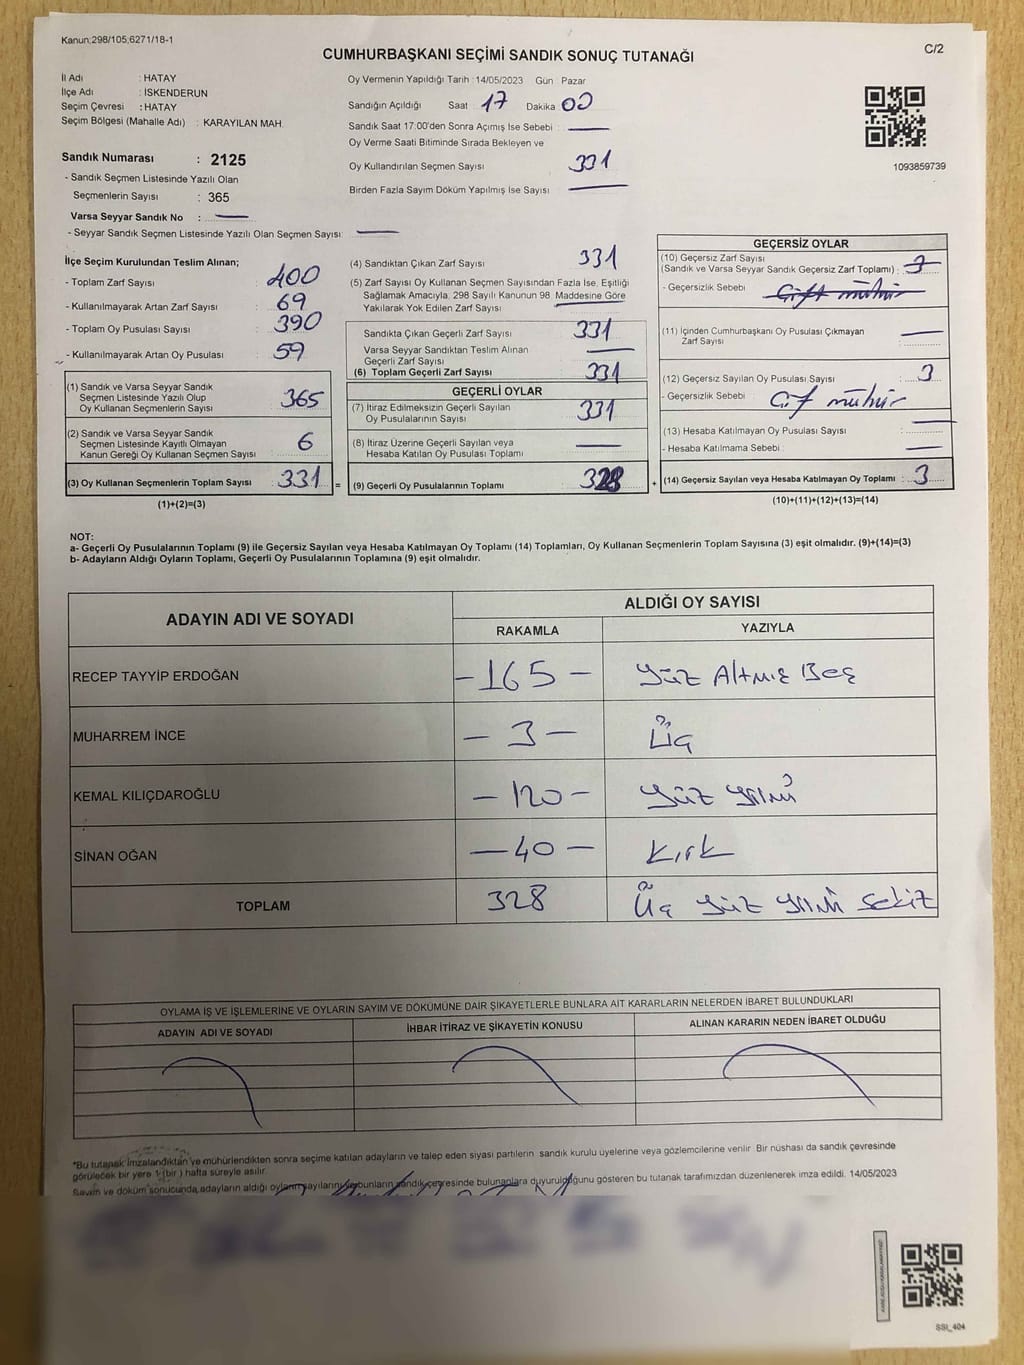 Kanun;298/105;6271/18-1
C/2
CUMHURBAŞKANI SEÇİMİ SANDIK SONUÇ TUTANAĞI
İl Adı : HATAY
İlçe Adı : İSKENDERUN
Seçim Çevresi : HATAY
Seçim Bölgesi (Mahalle Adı) : KARAYILAN MAH.
Oy Vermenin Yapıldığı Tarih : 14/05/2023 Gün Pazar
Sandığın Açıldığı Saat : 17 Dakika 00
Sandık Saat 17:00'den Sonra Açılmış İse Sebebi :
Oy Verme Saati Bitiminde Sırada Bekleyen ve
Oy Kullandırılan Seçmen Sayısı : 331
Birden Fazla Sayım Döküm Yapılmış İse Sayısı :
1093859739
Sandık Numarası : 2125
- Sandık Seçmen Listesinde Yazılı Olan
Seçmenlerin Sayısı : 365
Varsa Seyyar Sandık No :
- Seyyar Sandık Seçmen Listesinde Yazılı Olan Seçmen Sayısı:
İlçe Seçim Kurulundan Teslim Alınan;
- Toplam Zarf Sayısı : 400
- Kullanılmayarak Artan Zarf Sayısı : 69
- Toplam Oy Pusulası Sayısı : 390
- Kullanılmayarak Artan Oy Pusulası : 59
(1) Sandık ve Varsa Seyyar Sandık
Seçmen Listesinde Yazılı Olup
Oy Kullanan Seçmenlerin Sayısı : 365
(2) Sandık ve Varsa Seyyar Sandık
Seçmen Listesinde Kayıtlı Olmayan
Kanun Gereği Oy Kullanan Seçmen Sayısı : 6
(3) Oy Kullanan Seçmenlerin Toplam Sayısı : 331 =
(1)+(2)=(3)
(4) Sandıktan Çıkan Zarf Sayısı : 331
(5) Zarf Sayısı Oy Kullanan Seçmen Sayısından Fazla İse, Eşitliği
Sağlamak Amacıyla, 298 Sayılı Kanunun 98. Maddesine Göre
Yakılarak Yok Edilen Zarf Sayısı :
Sandıkta Çıkan Geçerli Zarf Sayısı : 331
Varsa Seyyar Sandıktan Teslim Alınan
Geçerli Zarf Sayısı :
(6) Toplam Geçerli Zarf Sayısı : 331
GEÇERLİ OYLAR
(7) İtiraz Edilmeksizin Geçerli Sayılan
Oy Pusulalarının Sayısı : 331
(8) İtiraz Üzerine Geçerli Sayılan veya
Hesaba Katılan Oy Pusulası Toplamı :
(9) Geçerli Oy Pusulalarının Toplamı : 328 +
GEÇERSİZ OYLAR
(10) Geçersiz Zarf Sayısı
(Sandık ve Varsa Seyyar Sandık Geçersiz Zarf Toplamı) : 3
- Geçersizlik Sebebi : Çift mühür
(11) İçinden Cumhurbaşkanı Oy Pusulası Çıkmayan
Zarf Sayısı :
(12) Geçersiz Sayılan Oy Pusulası Sayısı : 3
- Geçersizlik Sebebi : Çift mühür
(13) Hesaba Katılmayan Oy Pusulası Sayısı :
- Hesaba Katılmama Sebebi :
(14) Geçersiz Sayılan veya Hesaba Katılmayan Oy Toplamı : 3
(10)+(11)+(12)+(13)=(14)
NOT:
a- Geçerli Oy Pusulalarının Toplamı (9) ile Geçersiz Sayılan veya Hesaba Katılmayan Oy Toplamı (14) Toplamları, Oy Kullanan Seçmenlerin Toplam Sayısına (3) eşit olmalıdır. (9)+(14)=(3)
b- Adayların Aldığı Oyların Toplamı, Geçerli Oy Pusulalarının Toplamına (9) eşit olmalıdır.
ADAYIN ADI VE SOYADI
ALDIĞI OY SAYISI
RAKAMLA YAZIYLA
RECEP TAYYİP ERDOĞAN - 165 - Yüz Altmış Beş
MUHARREM İNCE - 3 - Üç
KEMAL KILIÇDAROĞLU - 120 - Yüz Yirmi
SİNAN OĞAN - 40 - Kırk
TOPLAM 328 Üç Yüz Yirmi Sekiz
OYLAMA İŞ VE İŞLEMLERİNE VE OYLARIN SAYIM VE DÖKÜMÜNE DAİR ŞİKAYETLERLE BUNLARA AİT KARARLARIN NELERDEN İBARET BULUNDUKLARI
ADAYIN ADI VE SOYADI İHBAR İTİRAZ VE ŞİKAYETİN KONUSU ALINAN KARARIN NEDEN İBARET OLDUĞU
*Bu tutanak imzalandıktan ve mühürlendikten sonra seçime katılan adayların ve talep eden siyasi partilerin sandık kurulu üyelerine veya gözlemcilerine verilir. Bir nüshası da sandık çevresinde
görülecek bir yere 1 (bir ) hafta süreyle asılır.
Sayım ve döküm sonucunda adayların aldığı oyların sayılarını ve bunların sandık çevresinde bulunanlara duyurulduğunu gösteren bu tutanak tarafımızdan düzenlenerek imza edildi. 14/05/2023
SSI_404